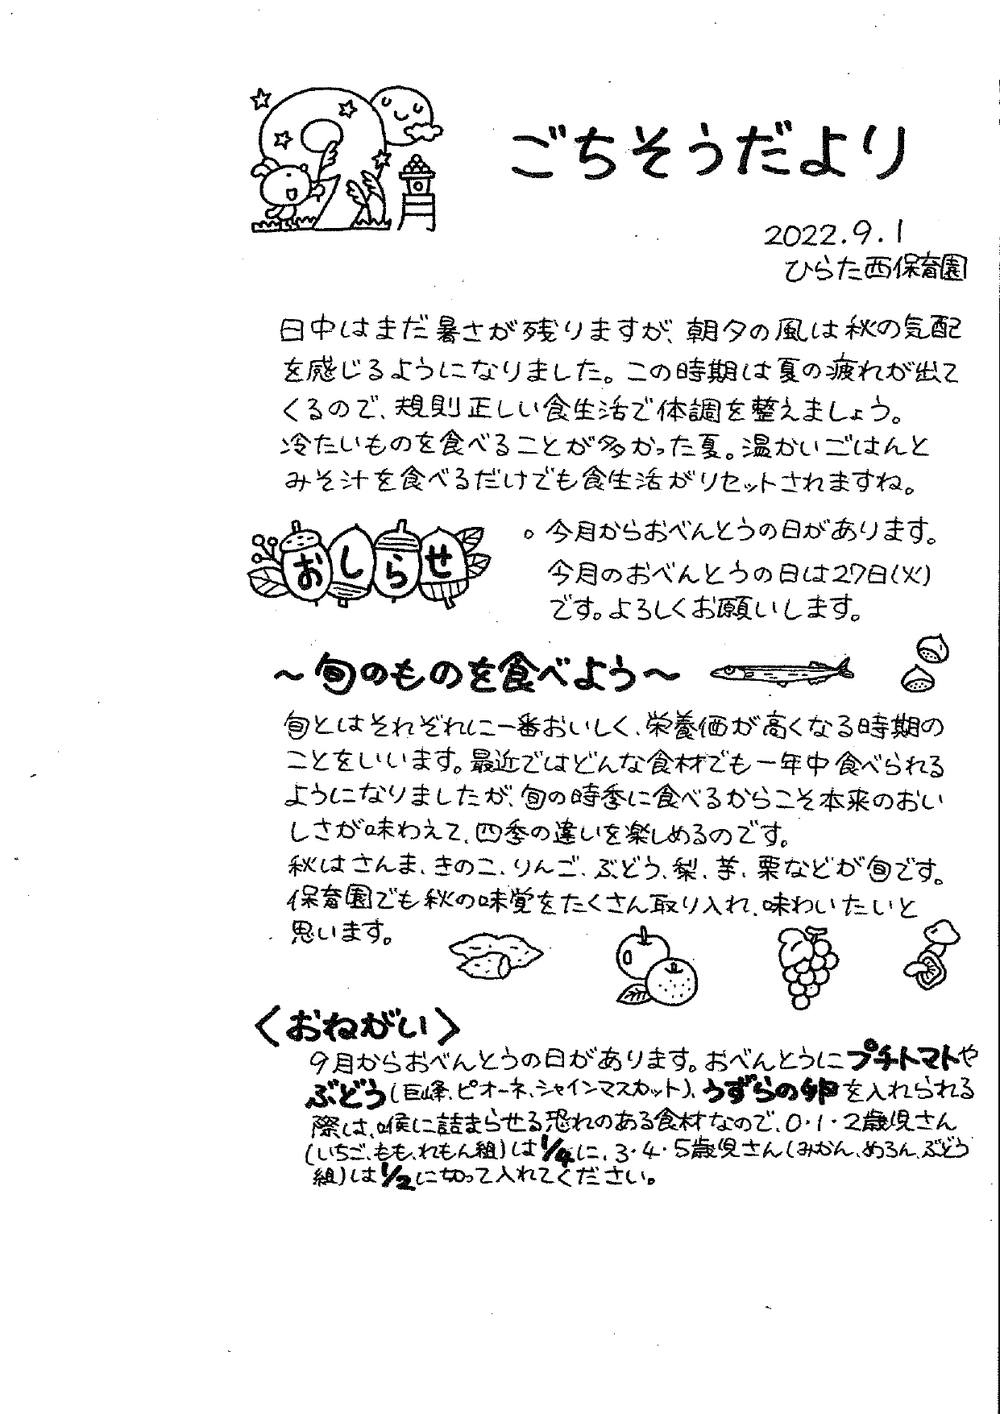 ごちそうだより
2022.9.1
ひらた西保育園
日中はまだ暑さが残りますが、朝夕の風は秋の気配
を感じるようになりました。この時期は夏の疲れが出て
くるので、規則正しい食生活で体調を整えましょう。
冷たいものを食べることが多かった夏。温かいごはんと
みそ汁を食べるだけでも食生活がリセットされますね。
おしらせ
。今月からおべんとうの日があります。
今月のおべんとうの日は27日(火)
です。よろしくお願いします。
～旬のものを食べよう～
旬とはそれぞれに一番おいしく、栄養価が高くなる時期の
ことをいいます。最近ではどんな食材でも一年中食べられる
ようになりましたが、旬の時季に食べるからこそ本来のおい
しさが味わえて、四季の違いを楽しめるのです。
秋はさんま、きのこ、りんご、ぶどう、梨、芋、栗などが旬です。
保育園でも秋の味覚をたくさん取り入れ、味わいたいと
思います。
〈おねがい〉
9月からおべんとうの日があります。おべんとうにプチトマトや
ぶどう(巨峰、ピオーネ、シャインマスカット)、うずらの卵を入れられる
際は、喉に詰まらせる恐れのある食材なので、0・1・2歳児さん
(いちご、もも、れもん組)は1/4に、3・4・5歳児さん(みかん、めろん、ぶどう
組)は1/2に切って入れてください。